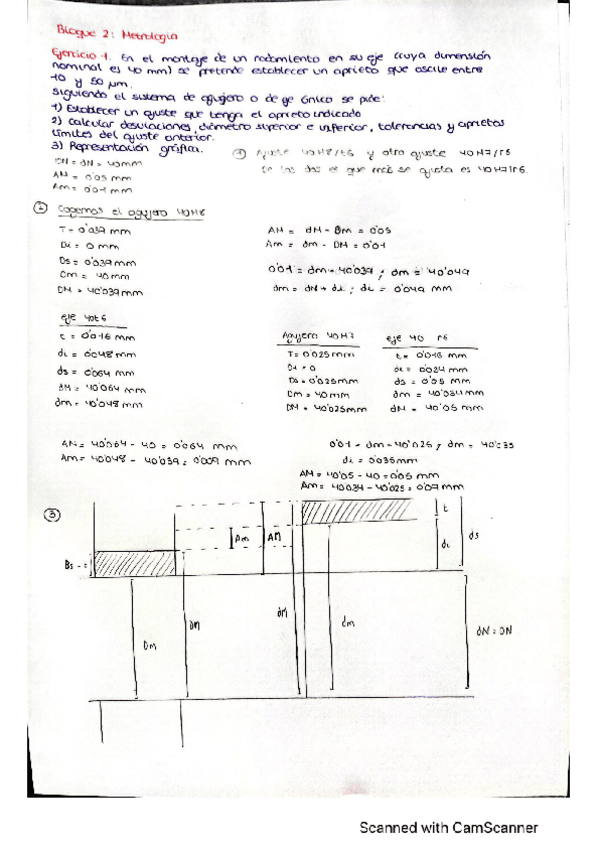 Bloque 2: Metrología
Ejercicio 1. En el montaje de un rodamiento en su eje (cuya dimensión
nominal es 40 mm) se pretende establecer un aprieto que oscile entre
10 y 50 μm.
Siguiendo el sistema de agujero o de eje único se pide:
1) Establecer un ajuste que tenga el aprieto indicado
2) Calcular desviaciones, diámetro superior e inferior, tolerancias y aprietos
límites del ajuste anterior.
3) Representación gráfica.
① Ajuste 40H8/t6 y otro ajuste 40H7/r6
De los dos el que más se ajusta es 40H7r6.
DN = dN = 40mm
AM = 0'05 mm
Am = 0'01 mm
② Cogemos el agujero 40H8
T = 0'039 mm
Di = 0 mm
Ds = 0'039mm
Dm = 40mm
DM = 40'039mm
AM = dM - Dm = 0'05
Am = dm - DM = 0'01
0'01 = dm - 40'039 ; dm = 40'049
dm = dN + di ; di = 0'049 mm
eje 40t6
t = 0'016 mm
di = 0'048 mm
ds = 0'064 mm
dM = 40'064 mm
dm = 40'048 mm
Agujero 40H7
T = 0'025mm
Di = 0
Ds = 0'025mm
Dm = 40mm
DM = 40'025mm
eje 40 r6
t = 0'016 mm
di = 0'034 mm
ds = 0'05 mm
dm = 40'034mm
dM = 40'05 mm
AM = 40'064 - 40 = 0'064 mm
Am = 40'048 - 40'039 = 0'009 mm
0'01 = dm - 40'025 ; dm = 40'035
di = 0'035mm
AM = 40'05 - 40 = 0'05 mm
Am = 40'034 - 40'025 = 0'09 mm
③
Am
AM
t
di
ds
Dm
DM
dM
dm
dN = DN
Scanned with CamScanner